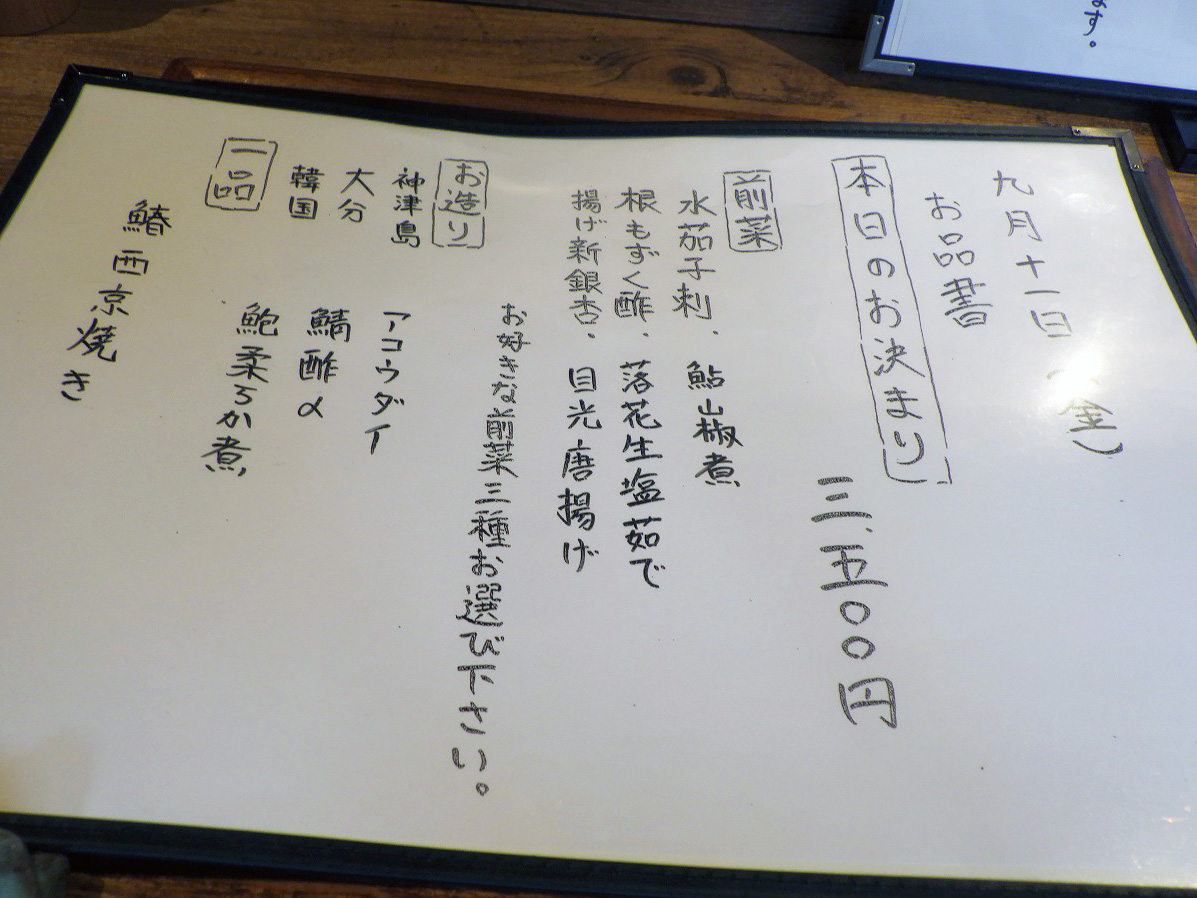 九月十一日(金)
お品書
本日のお決まり
三、五〇〇円
前菜
水茄子刺、鮎山椒煮
根もずく酢、落花生塩茹で
揚げ新銀杏、目光唐揚げ
お好きな前菜三種お選び下さい。
お造り
神津島 アコウダイ
大分 鯖酢〆
韓国 鮑柔らか煮
一品
鰆西京焼き
ます。